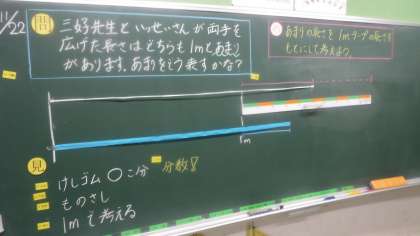 11/22
問
三好先生と いっせいさん が 両手を
広げた長さは どちらも 1mと あまり
があります。あまりをどう表すかな?
め
あまりの長さを 1mテープの長さを
もとにして考えよう。
1m
見
けしゴム ○こ分
分数!
ものさし
1m で 考える